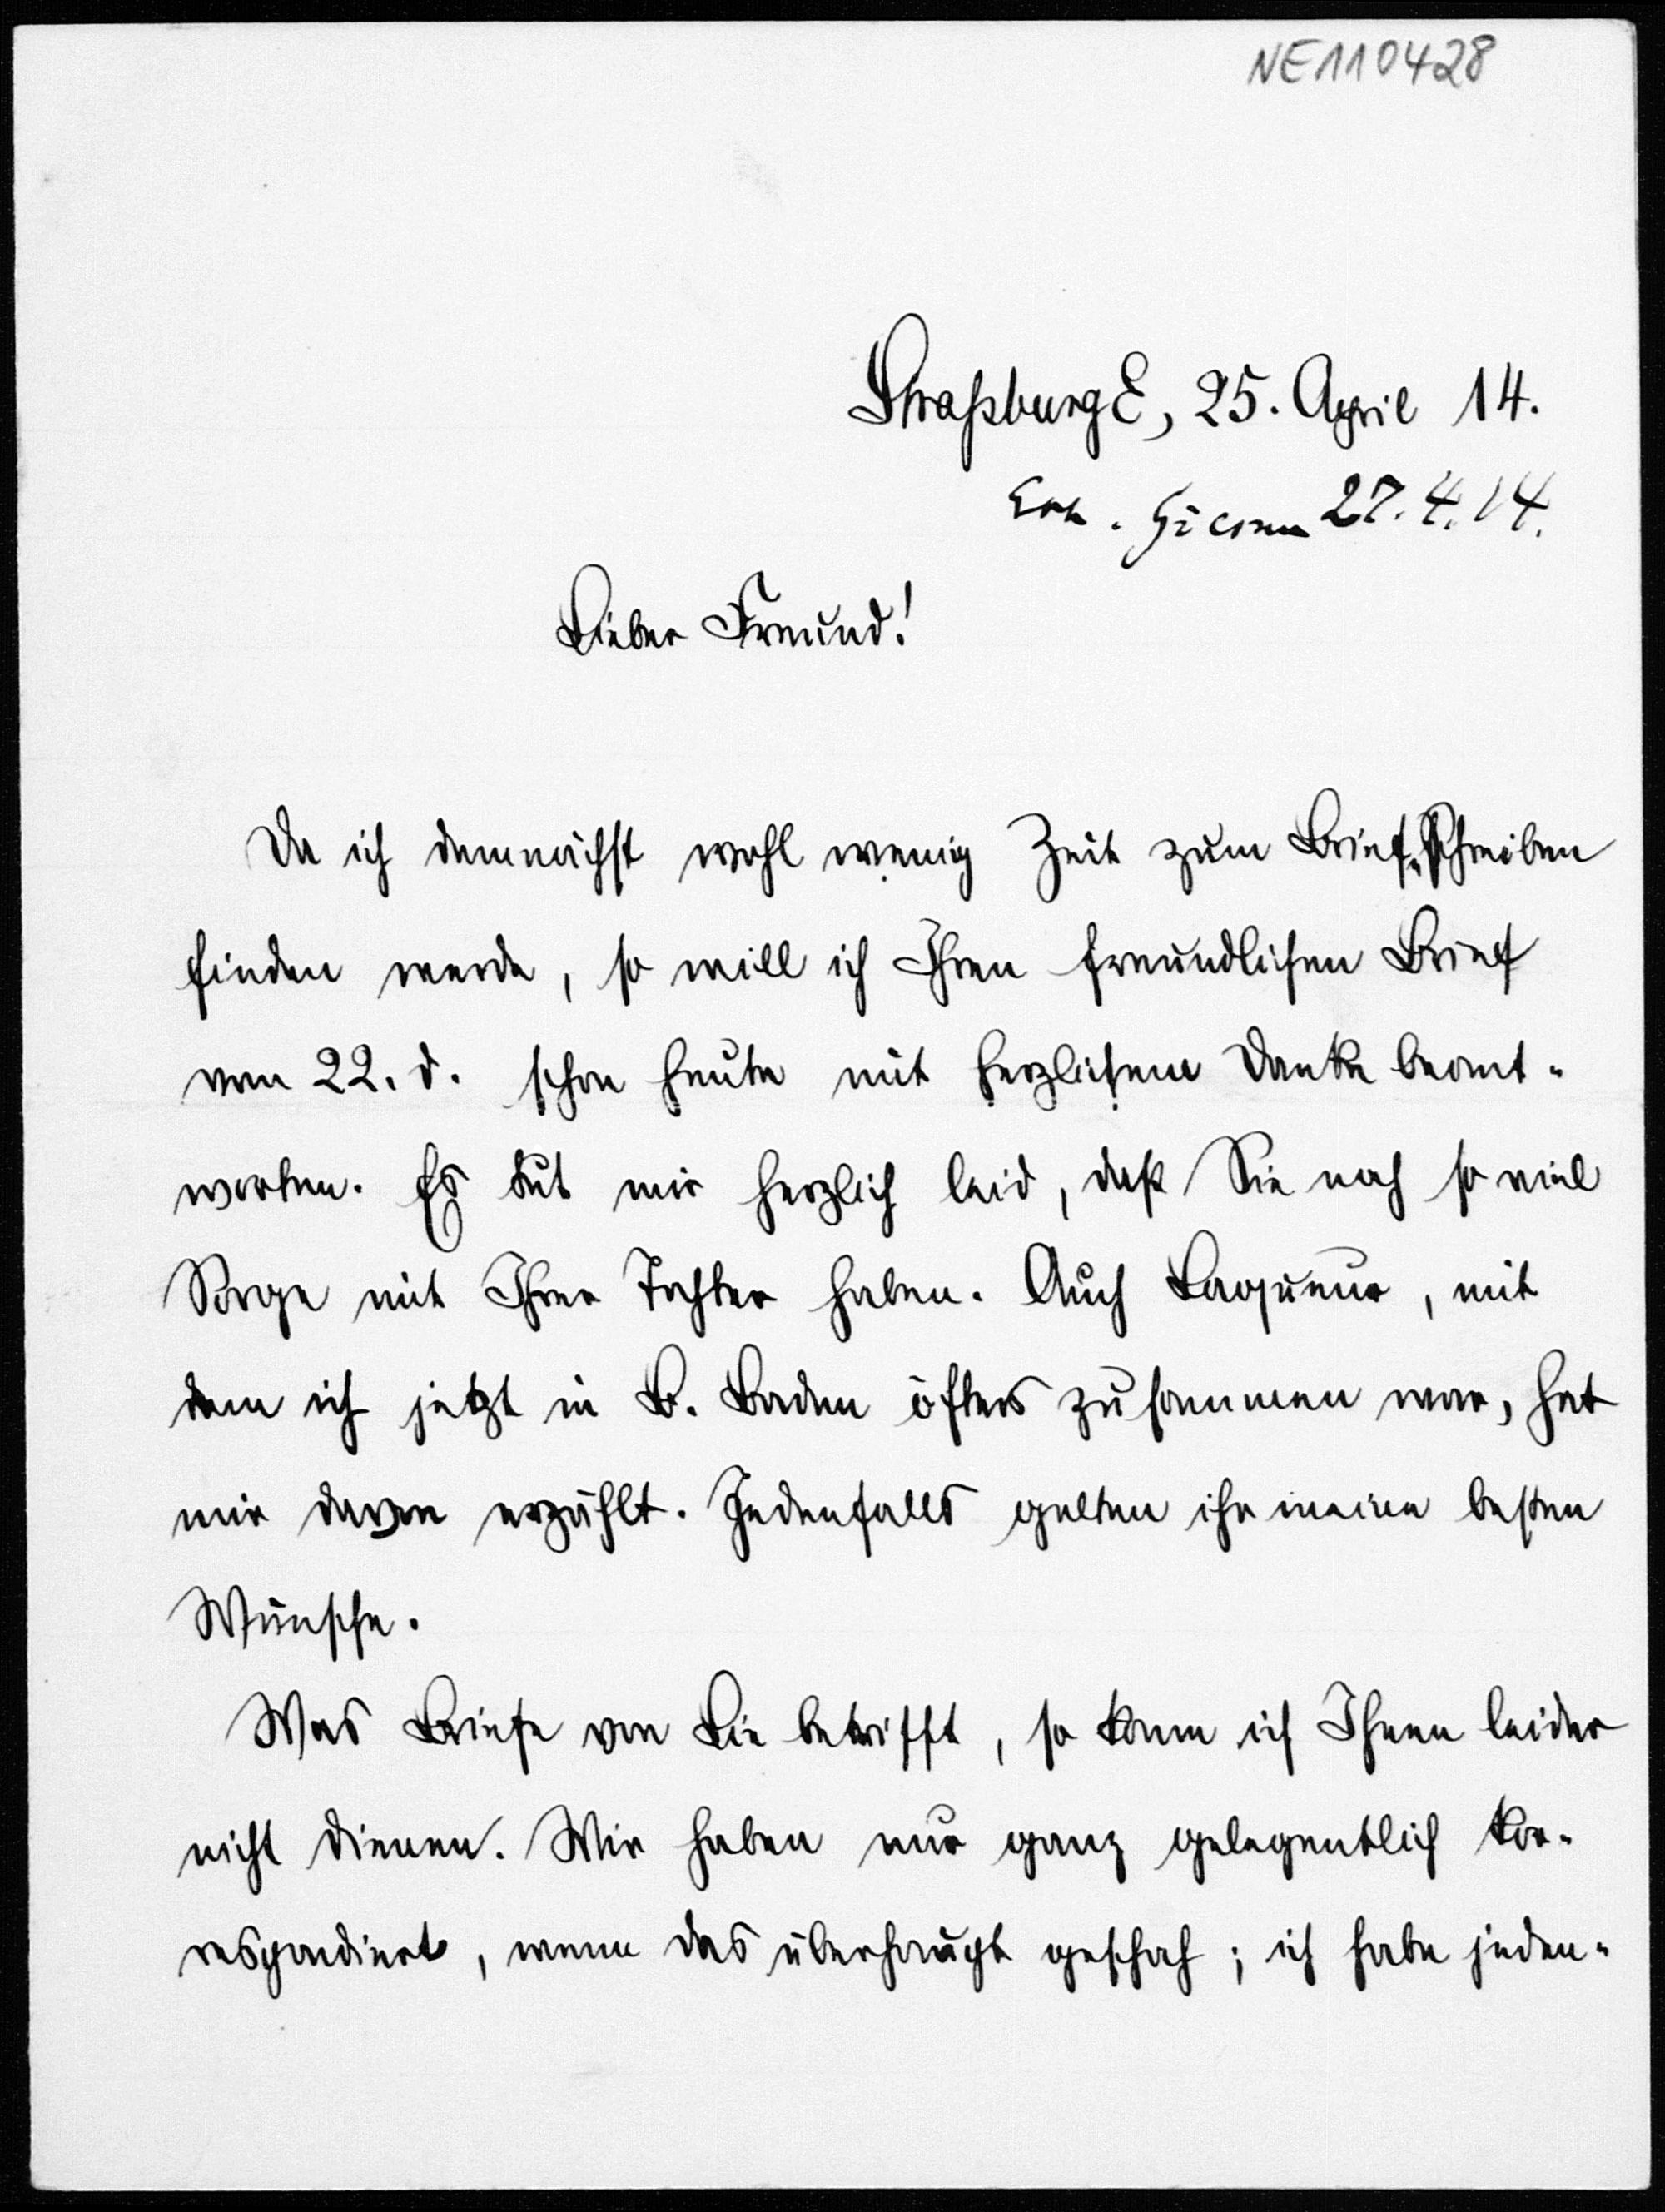 NE110428
Straßburg E, 25. April 14.
Erh. Giessen 27.4.14.
Lieber Freund!
Da ich demnächst wohl wenig Zeit zum Brief-Schreiben
finden werde, so will ich Ihren freundlichen Brief
vom 22. d. schon heute mit herzlichem Danke beant-
worten. Es tut mir herzlich leid, daß Sie noch so viel
Sorge mit Ihrer Tochter haben. Auch Laqueur, mit
dem ich jetzt in B. Baden öfters zusammen war, hat
mir davon erzählt. Jedenfalls gelten ihr meine besten
Wünsche.
Was Briefe von Lie betrifft, so kann ich Ihnen leider
nicht dienen. Wir haben nur ganz gelegentlich kor-
respondiert, wenn das überhaupt geschah; ich habe jeden-